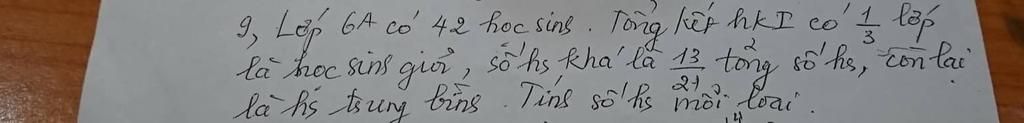 9, Lớp 6A có 42 học sinh. Tổng kết hkI có 1/3 lớp
là học sinh giỏi, số hs khá là 13/21 tổng số hs, còn lại
là hs trung bình. Tính số hs mỗi loại.